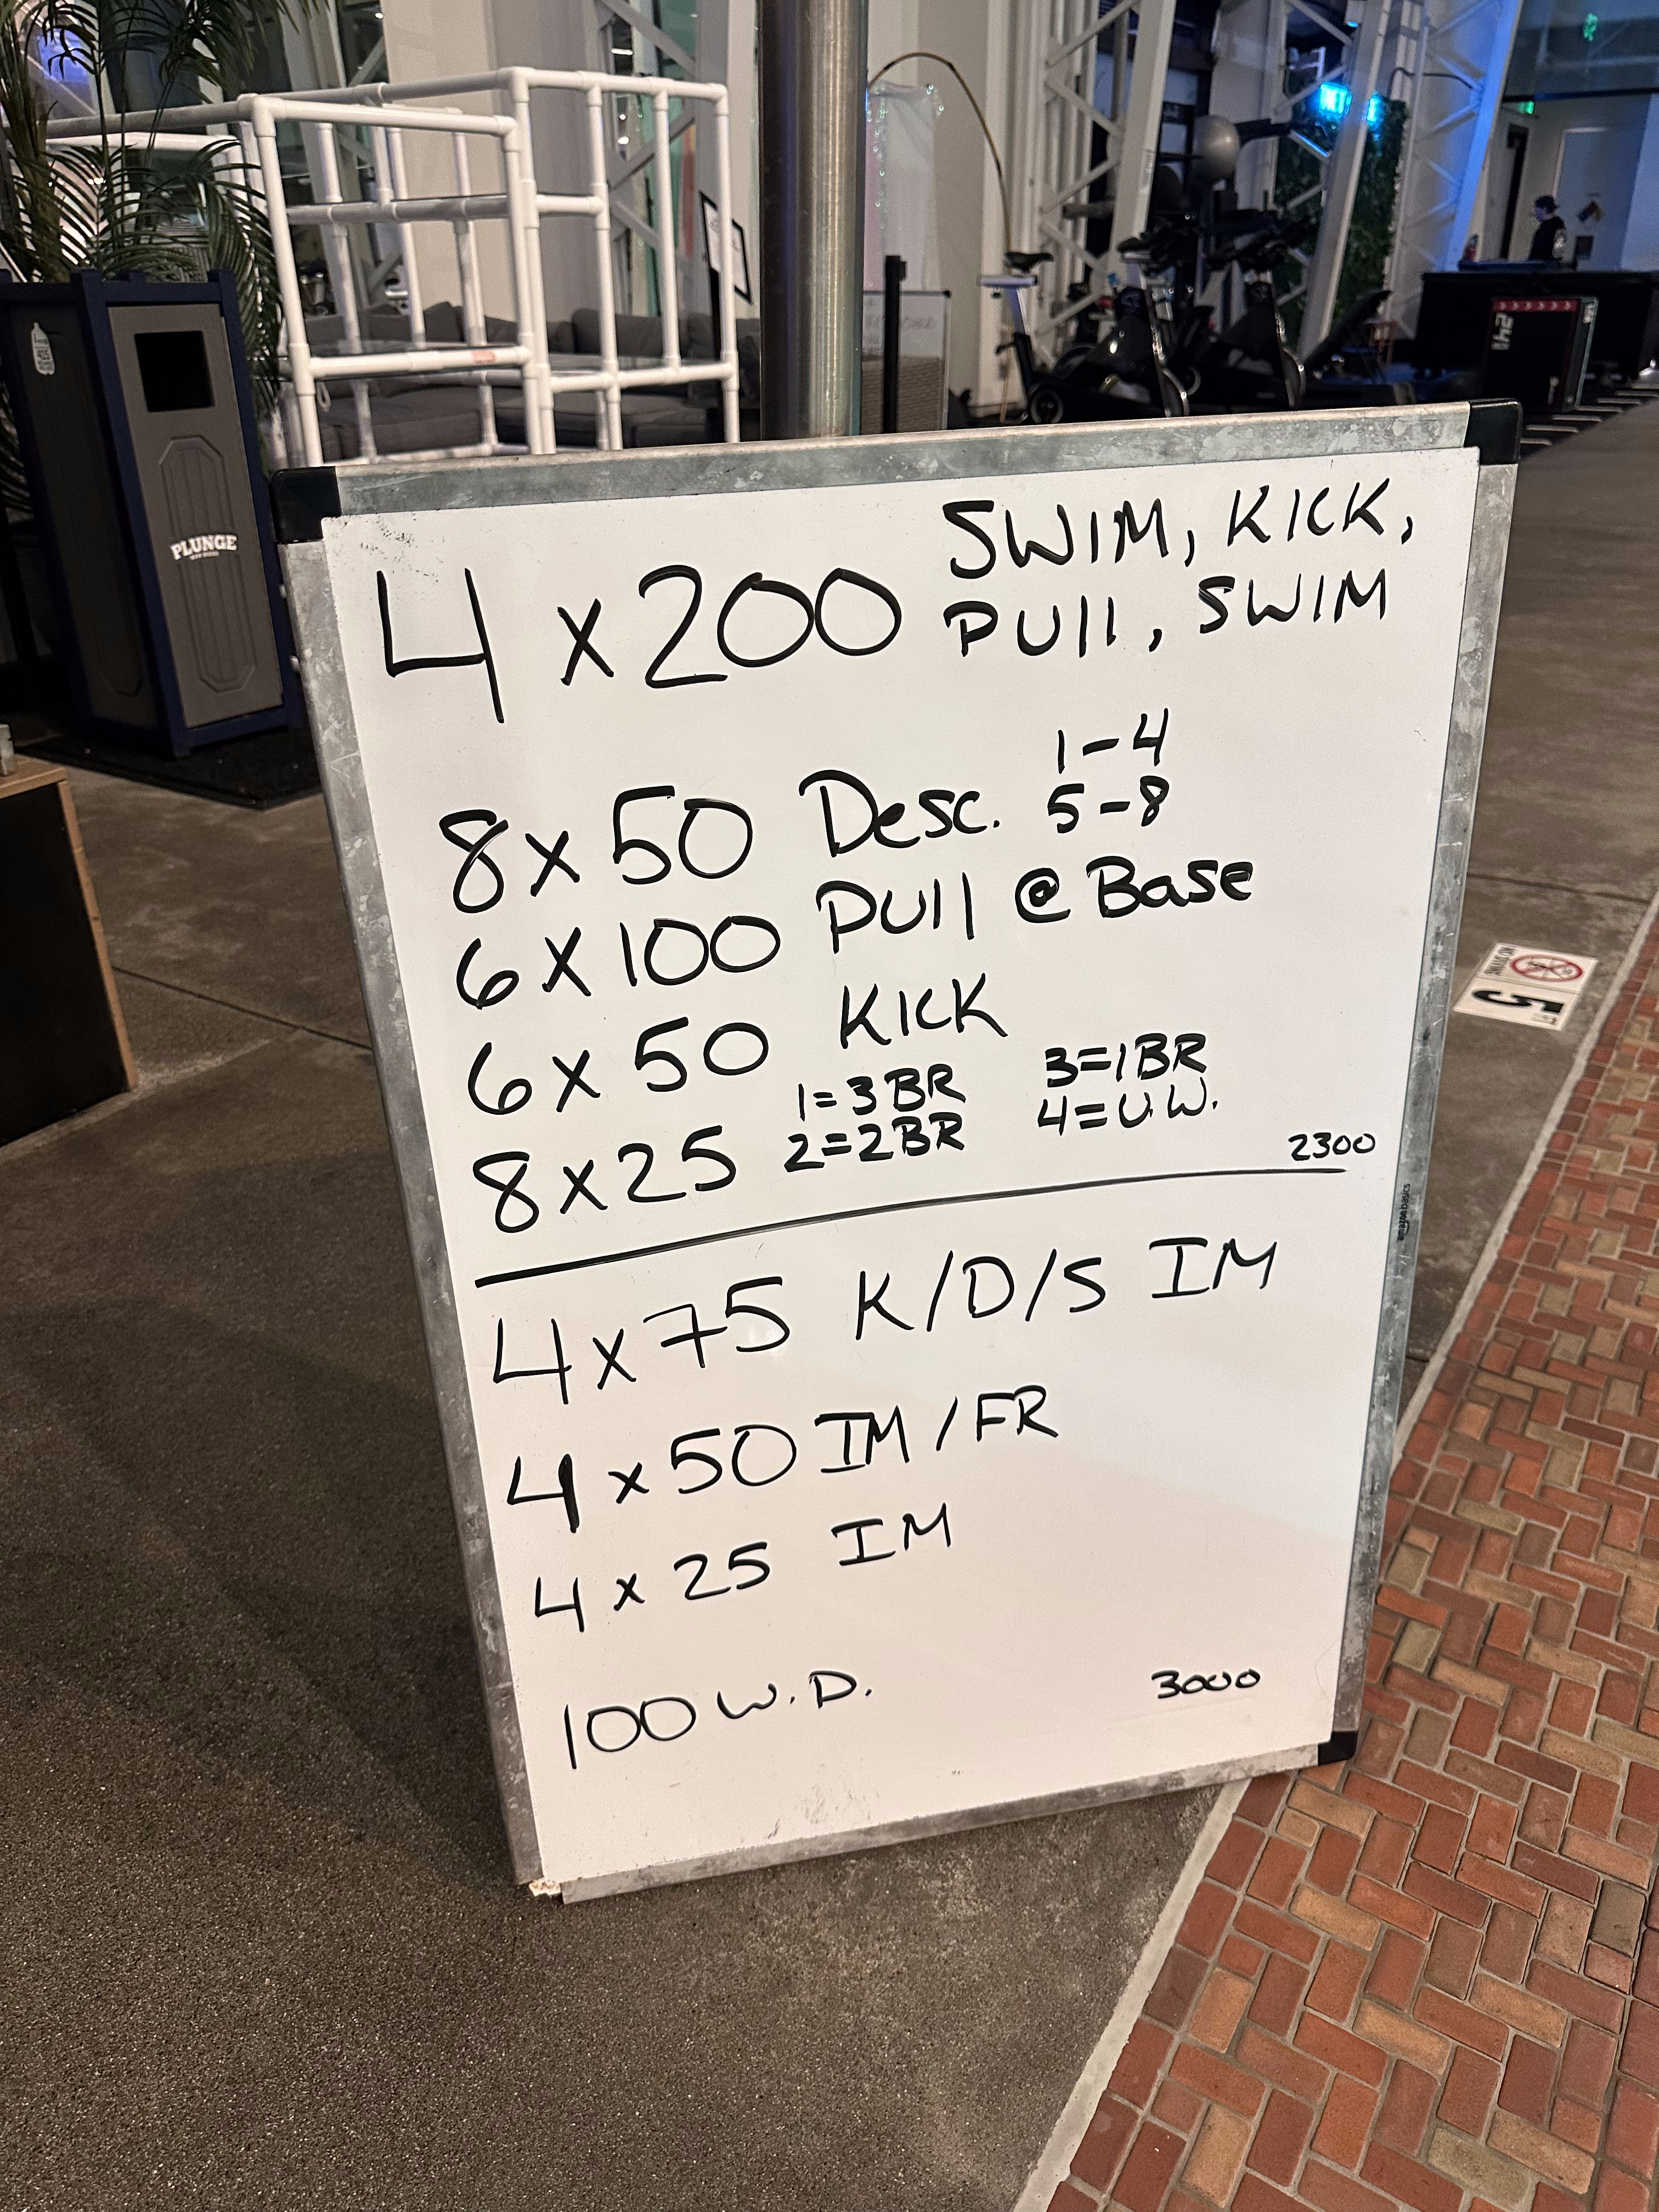 4 x 200 SWIM, KICK,
PULL, SWIM
8 x 50 Desc. 1-4
5-8
6 x 100 PULL @ Base
6 x 50 KICK
8 x 25 1=3BR 3=1BR
2=2BR 4=U.W.
2300
4 x 75 K/D/S IM
4 x 50 IM/FR
4 x 25 IM
100 W.D. 3000
PLUNGE
amazonbasics
NO DIVING
5 FT